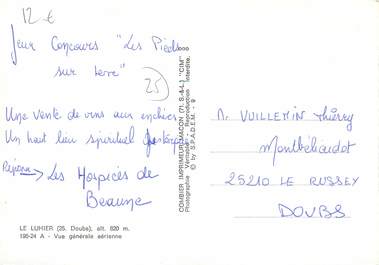 12 €
Jeux Concours "Les Pieds
sur terre"
25
Une vente de vins aux enchères
Un haut lieu spirituel
Réponse → Les Hospices de
Beaune
LE LUHIER (25. Doubs), alt. 820 m.
195-24 A - Vue générale aérienne
COMBIER IMPRIMEUR MACON (71, S.-&-L.) "CIM"
Photographie Véritable - Reproduction Interdite.
© by S.P.A.D.E.M. - 9
VUILLEMIN Thierry
Montbéliardot
25210 LE RUSSEY
DOUBS